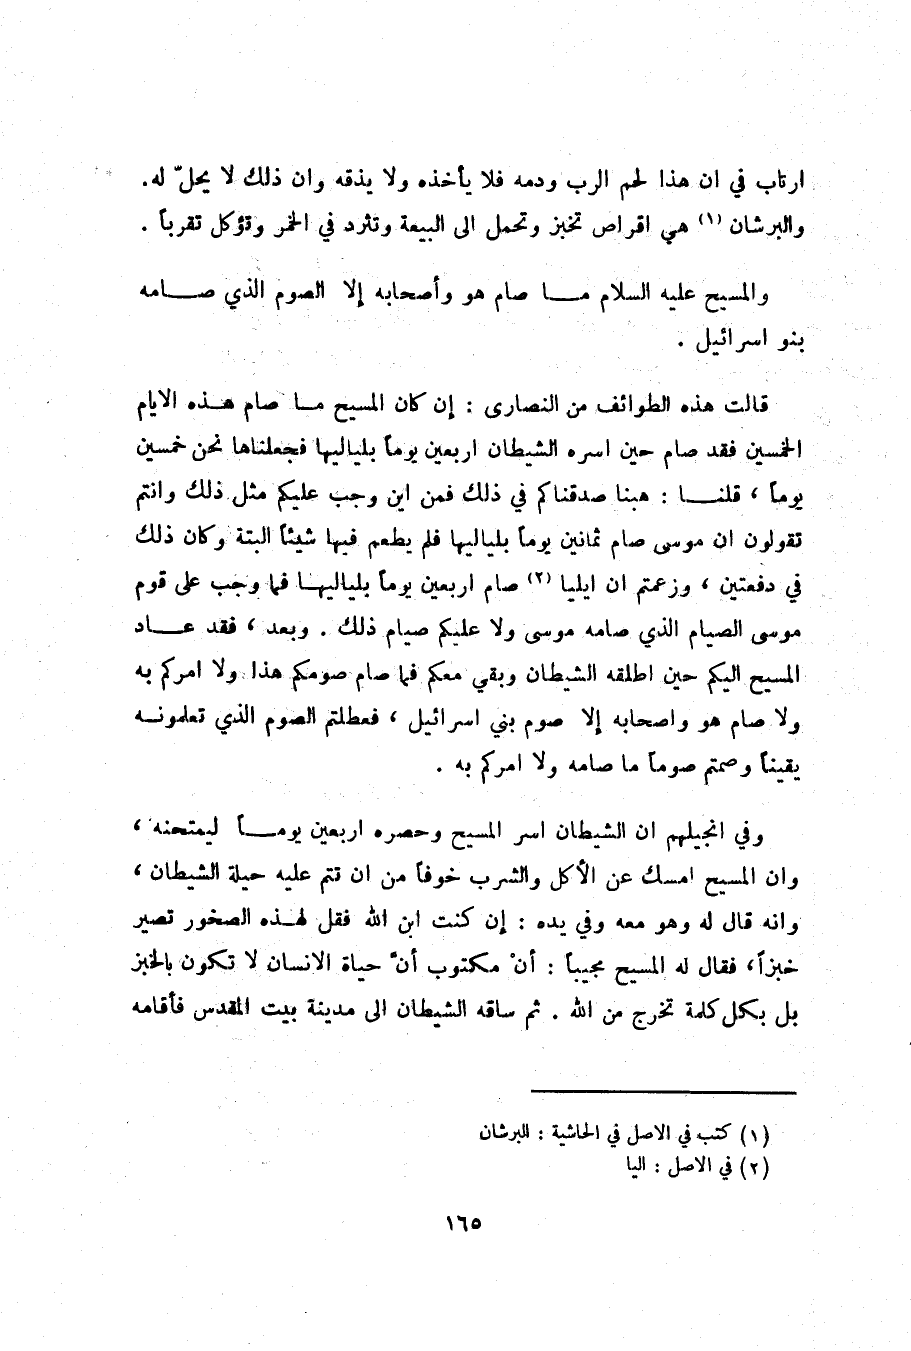 ارتاب في ان هذا لحم الرب ودمه فلا يأخذه ولا يذقه وان ذلك لا يحلّ له.
والبرشان (١) هي اقراص تخبز وتحمل الى البيعة وتثرد في الخمر وتؤكل تقرباً .
والمسيح عليه السلام مــا صام هو وأصحابه إلا الصوم الذي صــامه
بنو اسرائيل .
قالت هذه الطوائف من النصارى : إن كان المسيح مـا صام هـذه الايام
الخمسين فقد صام حين اسره الشيطان اربعين يوماً بلياليها فجعلناها نحن خمسين
يوماً ، قلنــا : هبنا صدقناكم في ذلك فمن اين وجب عليكم مثل ذلك وانتم
تقولون ان موسى صام ثمانين يوماً بلياليها فلم يطعم فيها شيئاً البتة وكان ذلك
في دفعتين ، وزعمتم ان ايليا (٢) صام اربعين يوماً بلياليهـا فما وجب على قوم
موسى الصيام الذي صامه موسى ولا عليكم صيام ذلك . وبعد ، فقد عــاد
المسيح اليكم حين اطلقه الشيطان وبقي معكم فما صام صومكم هذا ولا امركم به
ولا صام هو واصحابه إلا صوم بني اسرائيل ، فعطلتم الصوم الذي تعلمونـه
يقيناً وصمتم صوماً ما صامه ولا امركم به .
وفي انجيلهم ان الشيطان اسر المسيح وحصره اربعين يومــاً ليمتحنه ،
وان المسيح امسك عن الأكل والشرب خوفاً من ان تتم عليه حيلة الشيطان ،
وانه قال له وهو معه وفي يده : إن كنت ابن الله فقل لهـذه الصخور تصير
خبزاً، فقال له المسيح مجيباً : أنْ مكتوب أنّ حياة الانسان لا تكون بالخبز
بل بكل كلمة تخرج من الله . ثم ساقه الشيطان الى مدينة بيت المقدس فأقامه
(١) كتب في الاصل في الحاشية : البرشان
(٢) في الاصل : اليا
١٦٥